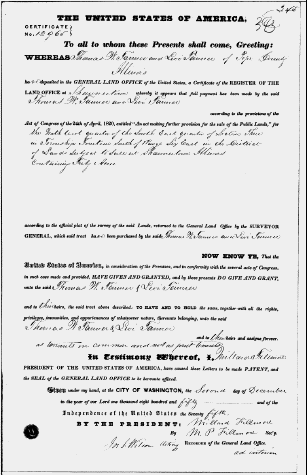 THE UNITED STATES OF AMERICA,
CERTIFICATE
No. 12965
To all to whom these Presents shall come, Greeting:
WHEREAS Thomas W. Tanner and Levi Tanner of Pope County
Illinois
ha deposited in the GENERAL LAND OFFICE of the United States, a Certificate of the REGISTER OF THE
LAND OFFICE at Shawneetown whereby it appears that full payment has been made by the said
Thomas W. Tanner and Levi Tanner
according to the provisions of the
Act of Congress of the 24th of April, 1820, entitled "An act making further provision for the sale of the Public Lands," for
the North East quarter of the South East quarter of Section
in Township South of Range Six East in the District
of Lands subject to sale at Shawneetown Illinois
containing forty Acres
according to the official plat of the survey of the said Lands, returned to the General Land Office by the SURVEYOR
GENERAL, which said tract ha been purchased by the said Thomas W. Tanner and Levi Tanner
NOW KNOW YE, That the
United States of America, in consideration of the Premises, and in conformity with the several acts of Congress,
in such case made and provided, HAVE GIVEN AND GRANTED, and by these presents DO GIVE AND GRANT,
unto the said Thomas W. Tanner & Levi Tanner
and to their heirs, the said tract above described, TO HAVE AND TO HOLD the same, together with all the rights,
privileges, immunities, and appurtenances of whatsoever nature, thereunto belonging, unto the said
Thomas W. Tanner & Levi Tanner
and to their heirs and assigns forever,
as tenants in common and not as joint tenants
In Testimony Whereof, I, Millard Fillmore
PRESIDENT OF THE UNITED STATES OF AMERICA, have caused these Letters to be made PATENT, and
the SEAL of the GENERAL LAND OFFICE to be hereunto affixed.
Given under my hand, at the CITY OF WASHINGTON, the Second day of December
in the year of our Lord one thousand eight hundred and fifty and of the
Independence of the United States the Seventy fifth
BY THE PRESIDENT: Millard Fillmore
By M. P. Fillmore Sec'y.
Jos. S. Wilson Acting RECORDER of the General Land Office.
ad interim